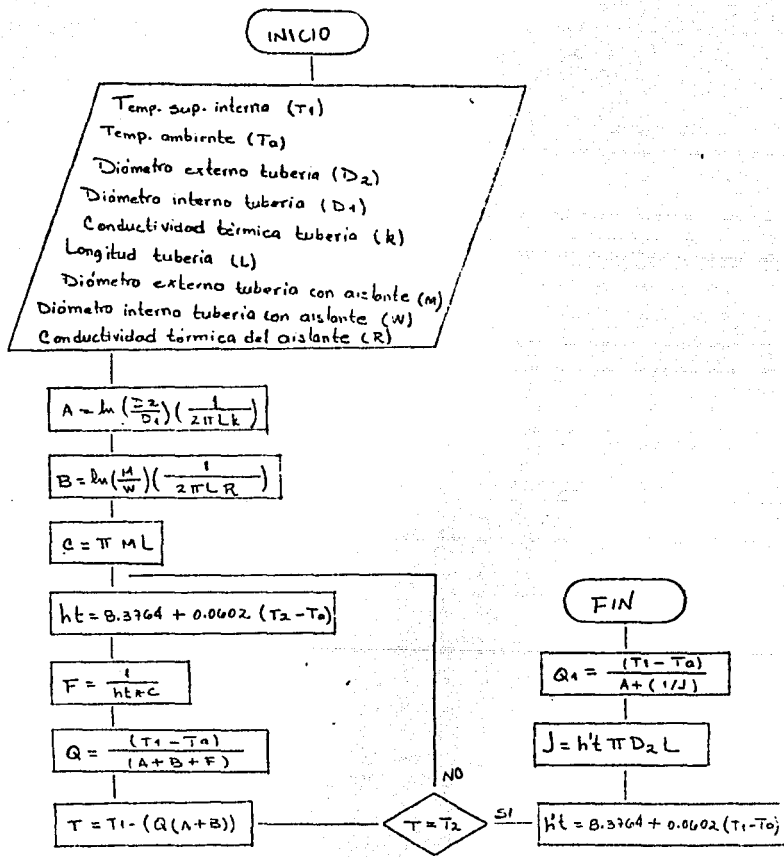 INICIO
Temp. sup. interna (T1)
Temp. ambiente (Ta)
Diámetro externo tubería (D2)
Diámetro interno tubería (D1)
Conductividad térmica tubería (k)
Longitud tubería (L)
Diámetro externo tubería con aislante (M)
Diámetro interno tubería con aislante (W)
Conductividad térmica del aislante (R)
A = ln (D2/D1) (1/2πLk)
B = ln (M/W) (1/2πLR)
C = π M L
ht = 8.3764 + 0.0602 (T2 - Ta)
F = 1/ht*C
Q = (T1 - Ta)/(A + B + F)
T = T1 - (Q(A+B))
T = T2
NO
SI
h't = 8.3764 + 0.0602 (T1 - Ta)
J = h't π D2 L
Q1 = (T1 - Ta)/A + (1/J)
FIN